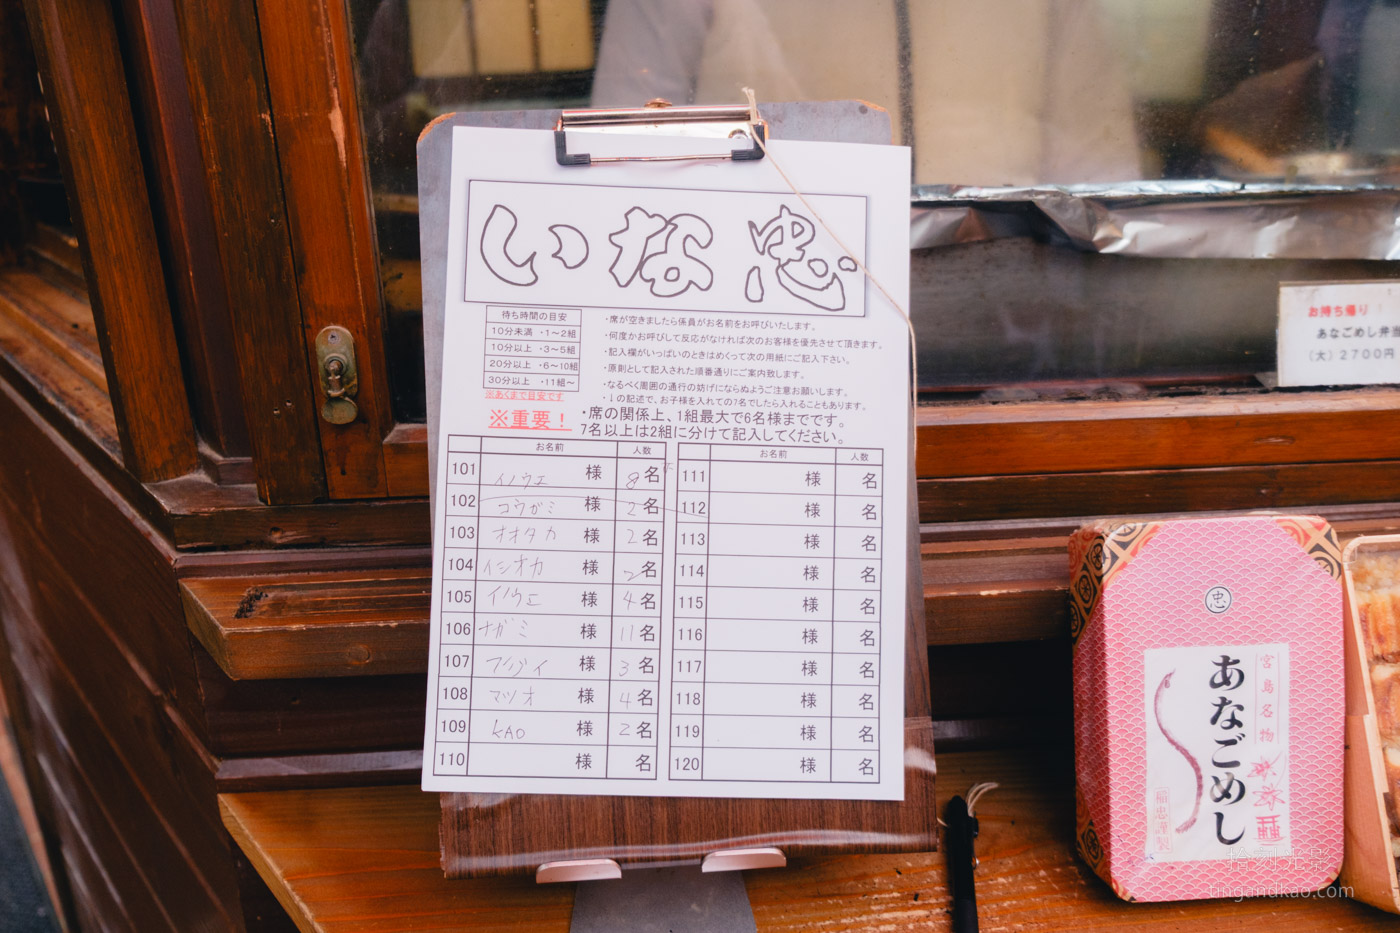 いな忠
待ち時間の目安
10分未満 ・1～2組
10分以上 ・3～5組
20分以上 ・6～10組
30分以上 ・11組～
※あくまで目安です
・席が空きましたら係員がお名前をお呼びいたします。
・何度かお呼びして反応がなければ次のお客様を優先させて頂きます。
・記入欄がいっぱいのときはめくって次の用紙にご記入下さい。
・原則として記入された順番通りにご案内致します。
・なるべく周囲の通行の妨げにならぬようご注意お願いします。
・↓の記述で、お子様を入れての7名でしたら入れることもあります。
※重要！
・席の関係上、1組最大で6名様までです。
7名以上は2組に分けて記入してください。
お名前 人数
101 イノウエ 様 8名
102 コウガミ 様 2名
103 オオタカ 様 2名
104 イシオカ 様 2名
105 イノウエ 様 4名
106 ナガミ 様 11名
107 様 3名
108 マツオ 様 4名
109 KAO 様 2名
110 様 名
お名前 人数
111 様 名
112 様 名
113 様 名
114 様 名
115 様 名
116 様 名
117 様 名
118 様 名
119 様 名
120 様 名
お持ち帰り
あなごめし弁当
（大）2700円
忠
宮島名物
あなごめし
稲忠謹製
拾刻光影
tingandkao.com